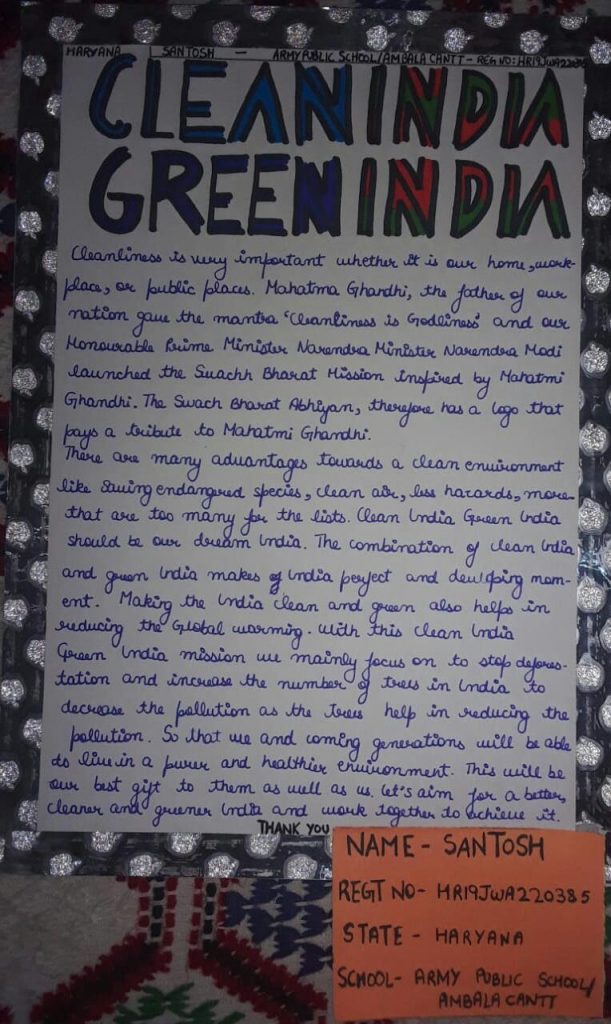 HARYANA SANTOSH - ARMY PUBLIC SCHOOL/AMBALA CANTT - REG NO: HR19JWA220385
CLEAN INDIA
GREEN INDIA
Cleanliness is very important whether it is our home, work-
place, or public places. Mahatma Ghandhi, the father of our
nation gave the mantra 'Cleanliness is Godliness' and our
Honourable Prime Minister Narendra Minister Narendra Modi
launched the Swachh Bharat Mission inspired by Mahatmi
Ghandhi. The Swach Bharat Abhiyan, therefore has a logo that
pays a tribute to Mahatmi Ghandhi.
There are many advantages towards a clean environment
like saving endangered species, clean air, less hazards, more-
that are too many for the lists. Clean India Green India
should be our dream India. The combination of clean India
and green India makes of India perfect and mom-
ent. Making the India clean and green also helps in
reducing the Global warming. With this Clean India
Green India mission we mainly focus on to stop defores-
tation and increase the number of trees in India to
decrease the pollution as the trees help in reducing the
pollution. So that we and coming generations will be able
to live in a purer and healthier environment. This will be
our best gift to them as well as us. Let's aim for a better,
cleaner and greener India and work together to achieve it.
THANK YOU
NAME - SANTOSH
REGT NO - HR19JWA220385
STATE - HARYANA
SCHOOL - ARMY PUBLIC SCHOOL/
AMBALA CANTT